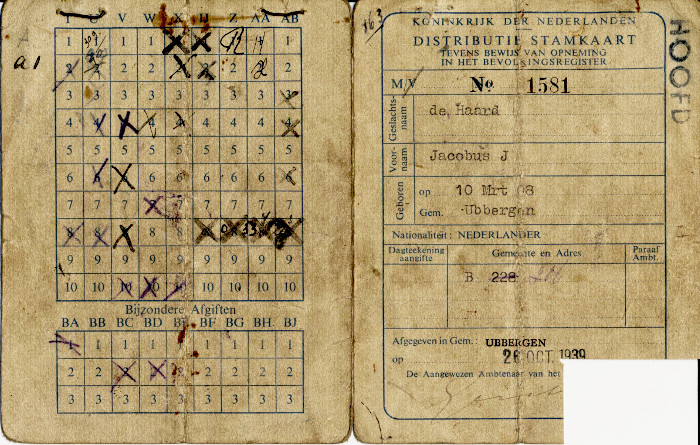 a 1
C V W X H Z AA AB
1 1 1 1 1
2 2 2 2 2
3 3 3 3 3 3 3 3 3
4 4 4 4 4 4 4
5 5 5 5 5 5 5 5 5
6 6 6 6 6 6 6 6
7 7 7 7 7 7 7 7
8 8 8 8
9 9 9 9 9 9 9 9 9
10 10 10 10 10 10 10 10 10
Bijzondere Afgiften
BA BB BC BD BE BF BG BH BJ
1 1 1 1 1 1 1 1
2 2 2 2 2 2 2 2 2
3 3 3 3 3 3 3 3 3
163
KONINKRIJK DER NEDERLANDEN
DISTRIBUTIE STAMKAART
TEVENS BEWIJS VAN OPNEMING
IN HET BEVOLKINGSREGISTER
HOOFD
M/V No 1581
Geslachts-
naam
de Haard
Voor-
naam
Jacobus J
Geboren
op 10 Mrt 08
Gem. Ubbergen
Nationaliteit: NEDERLANDER
Dagteekening
aangifte
Gemeente en Adres
Paraaf
Ambt.
B 228
Afgegeven in Gem.: UBBERGEN
op 26 OCT 1939
De Aangewezen Ambtenaar van het